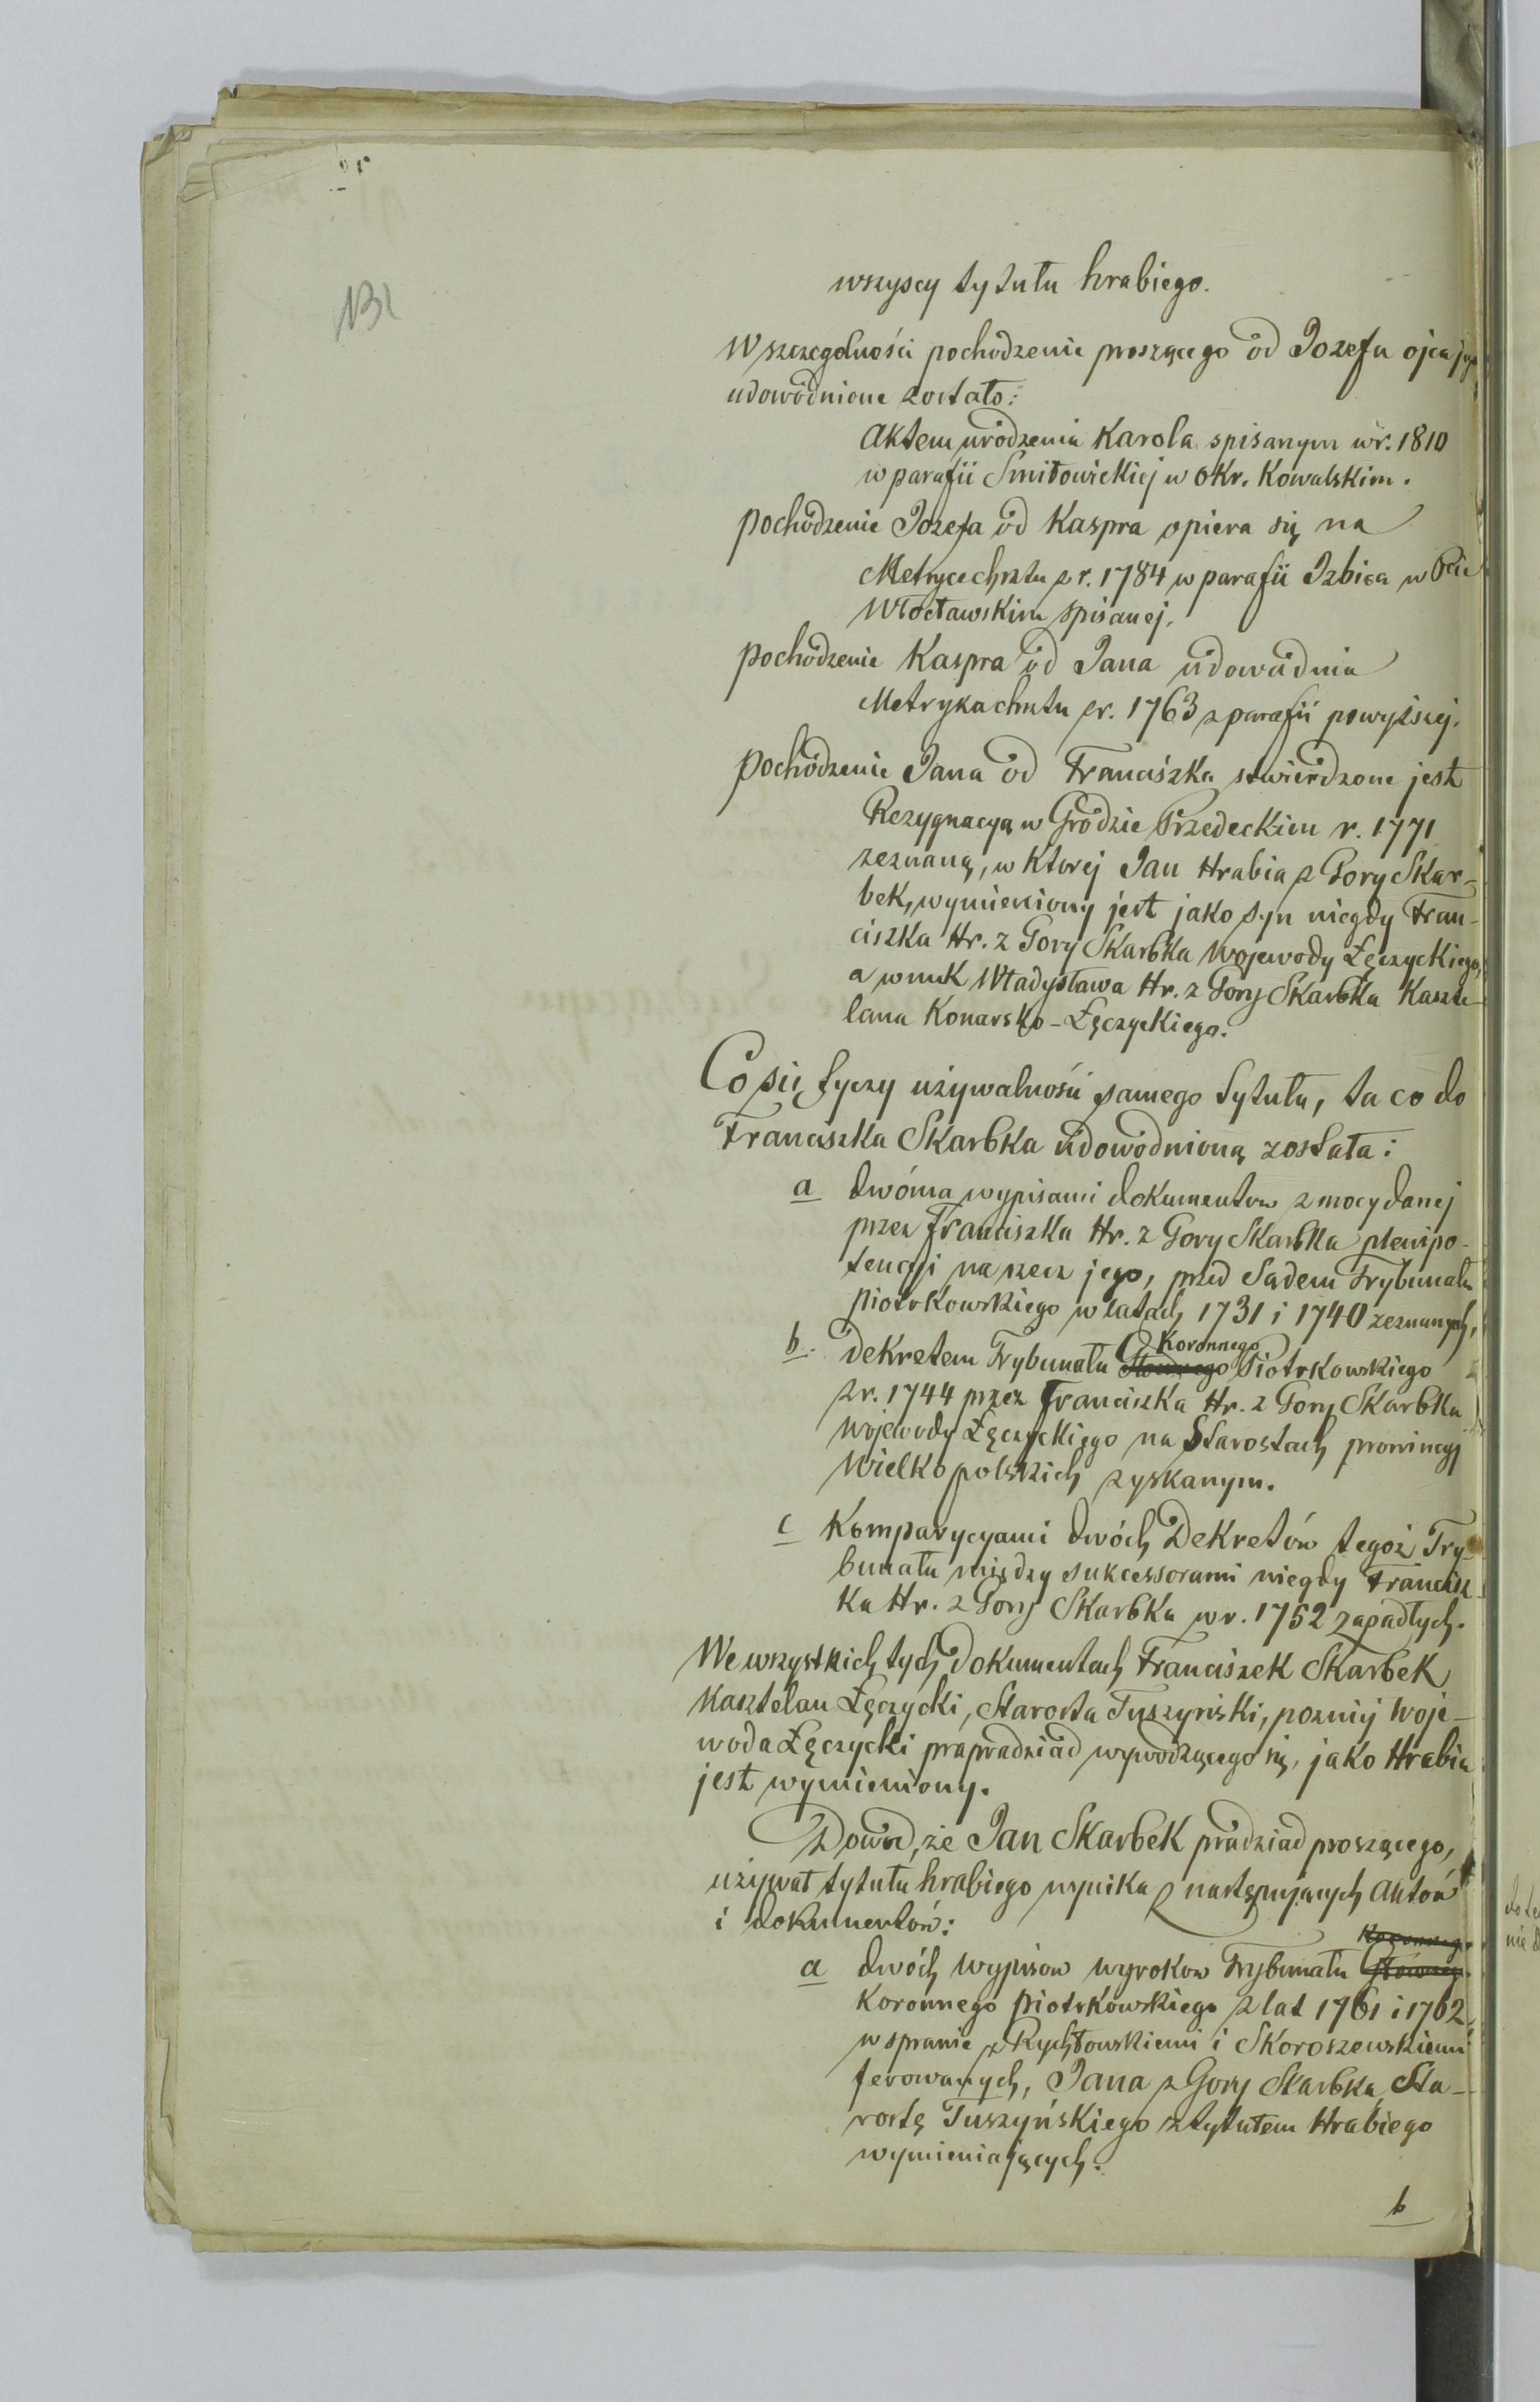 131
wszyscy tytułu hrabiego.
W szczegolności pochodzenie proszącego od Jozefa ojca jego
udowodnione zostało:
Aktem urodzenia Karola spisanym w r. 1810
w parafii Smiłowickiej w Okr. Kowalskim.
pochodzenie Jozefa od Kaspra opiera się na
Metryce chrztu z r. 1784 w parafii Izbica w Pcie
Włocławskim spisanej.
pochodzenie Kaspra od Jana udowadnia
Metryka chrztu z r. 1763 z parafii powyższej.
pochodzenie Jana od Franciszka stwierdzone jest
Rezygnacyą w Grodzie Przedeckim r. 1771
zeznaną, w ktorej Jan Hrabia z Gory Skar-
bek, wymieniony jest jako syn niegdy Fran-
ciszka Hr. z Gory Skarbka Wojewody Łęczyckiego,
a wnuk Władysława Hr. z Gory Skarbka Kaszte-
lana Konarsko-Łęczyckiego.
Co się tyczy używalności samego tytułu, ta co do
Franciszka Skarbka udowodnioną została:
a dwóma wypisami dokumentow z mocy danej
przez Franciszka Hr. z Gory Skarbka plenipo-
tencyi na rzecz jego, przed Sądem Trybunału
Piotrkowskiego w latach 1731 i 1740 zeznanych,
b. Dekretem Trybunału Głownego Koronnego Piotrkowskiego
z r. 1744 przez Franciszka Hr. z Gory Skarbka
Wojewody Łęczyckiego na Starostach prowincyj
Wielkopolskich zyskanym.
c Komparycyami dwóch Dekretów tegoż Try-
bunału między sukcessorami niegdy Francisz-
ka Hr. z Gory Skarbka w r. 1752 zapadłych.
We wszystkich tych Dokumentach Franciszek Skarbek
Kasztelan Łęczycki, Starosta Tuszyński, poznij Woje-
woda Łęczycki prapradziad wywodzącego się, jako Hrabia
jest wymieniony.
Dowod, że Jan Skarbek pradziad proszącego,
używał tytułu hrabiego wynika z następujących Aktów
i dokumentów:
a dwóch wypisow wyrokow Trybunału Głownego Koronnego
Koronnego Piotrkowskiego z lat 1761 i 1762
w sprawie z Rychłowskiemi i Skoroszewskiemi
ferowanych, Jana z Gory Skarbka, Sta-
rostę Tuszyńskiego z tytułem Hrabiego
wymieniających.
b